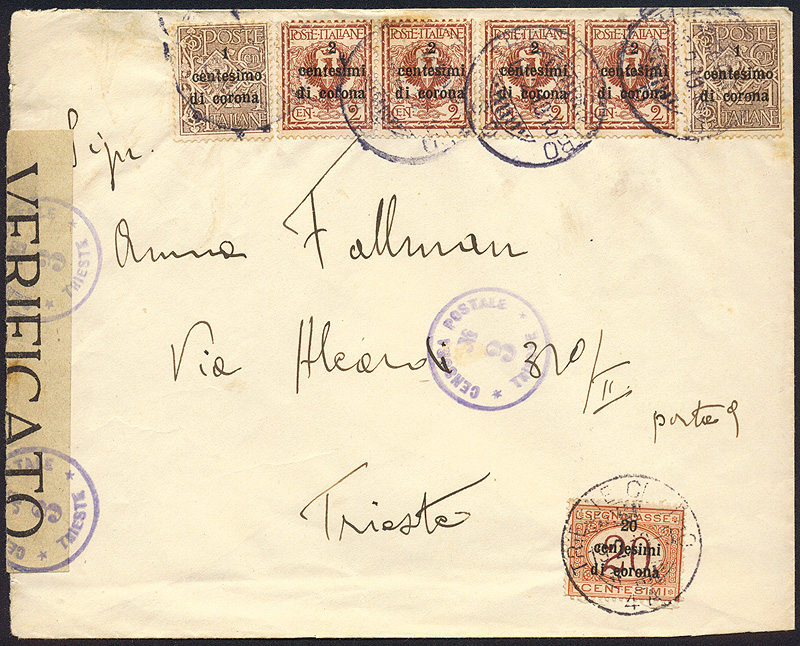 POSTE
1
centesimo
di corona
ITALIANE
POSTE·ITALIANE
2
centesimi
di corona
CEN. 2
POSTE·ITALIANE
2
centesimi
di corona
CEN. 2
POSTE·ITALIANE
2
centesimi
di corona
CEN. 2
POSTE·ITALIANE
2
centesimi
di corona
CEN. 2
POSTE
1
centesimo
di corona
ITALIANE
VERIFICATO
TRIESTE
Anna Fallman
Via Aleardi
CENSURA POSTALE
TRIESTE
porta 9
Trieste
TRIESTE
SEGNATASSE
20
centesimi
di corona
20
CENTESIMI